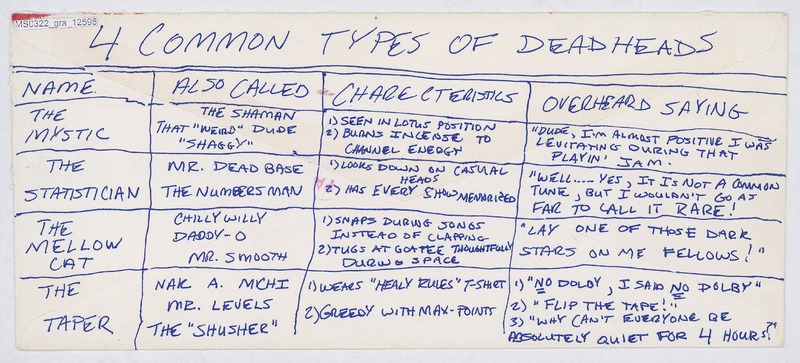 MS0322_gra_12598
4 COMMON TYPES OF DEADHEADS
NAME
ALSO CALLED
CHARECTERISTICS
OVERHEARD SAYING
THE
MYSTIC
THE SHAMAN
THAT "WEIRD" DUDE
"SHAGGY"
1) SEEN IN LOTUS POSITION
2) BURNS INCENSE TO
CHANNEL ENERGY
"DUDE, I'M ALMOST POSITIVE I WAS
LEVITATING DURING THAT
PLAYIN' JAM.
THE
STATISTICIAN
MR. DEAD BASE
THE NUMBERS MAN
1) LOOKS DOWN ON CASUAL
HEADS
2) HAS EVERY SHOW MEMORIZED
"WELL.... YES, IT IS NOT A COMMON
TUNE, BUT I WOULDN'T GO AS
FAR TO CALL IT RARE!
THE
MELLOW
CAT
CHILLY WILLY
DADDY-O
MR. SMOOTH
1) SNAPS DURING SONGS
INSTEAD OF CLAPPING
2) TUGS AT GOATEE THOUGHTFULLY
DURING SPACE
"LAY ONE OF THOSE DARK
STARS ON ME FELLOWS!"
THE
TAPER
NAK A. MICHI
MR. LEVELS
THE "SHUSHER"
1) WEARS "HEALY RULES" T-SHIRT
2) GREEDY WITH MAX-POINTS
1) "NO DOLBY, I SAID NO DOLBY"
2) "FLIP THE TAPE!"
3) "WHY CAN'T EVERYONE BE
ABSOLUTELY QUIET FOR 4 HOURS?"